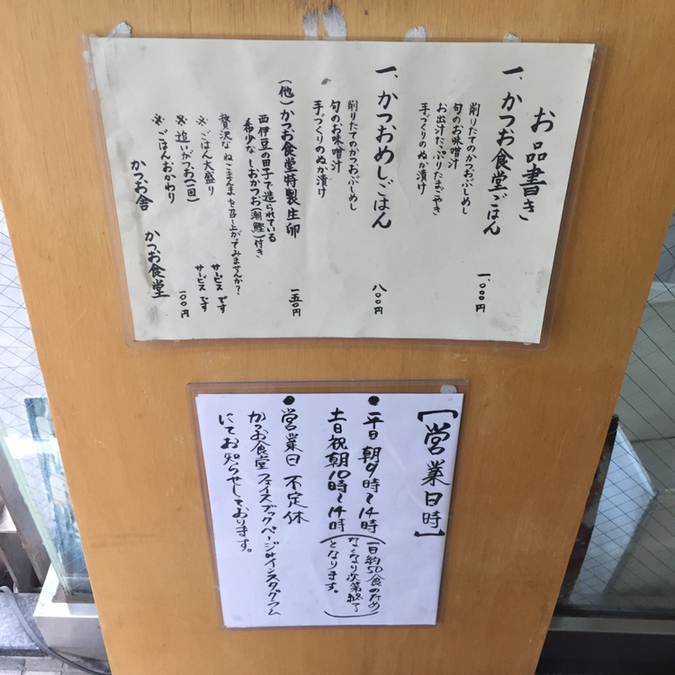 お品書き
一、かつお食堂ごはん 一、000円
削りたてのかつおぶしめし
旬のお味噌汁
お出汁たっぷりたまごやき
手づくりのぬか漬け
一、かつおめしごはん 八00円
削りたてのかつおぶしめし
旬のお味噌汁
手づくりのぬか漬け
(他)かつお食堂特製生卵 一五0円
西伊豆の田子で造られている
希少なしおかつお(潮鰹)付き
贅沢なねこまんまを召し上がってみませんか?
※ごはん大盛り サービスです
※追いがつお(一回) サービスです
※ごはんおかわり 一00円
かつお舎 かつお食堂
【営業日時】
●平日 朝9時〜14時
土日祝朝10時〜14時
(一日約50食のため
なくなり次第終了
となります。)
●営業日 不定休
かつお食堂フェイスブックページorインスタグラム
にてお知らせしております。